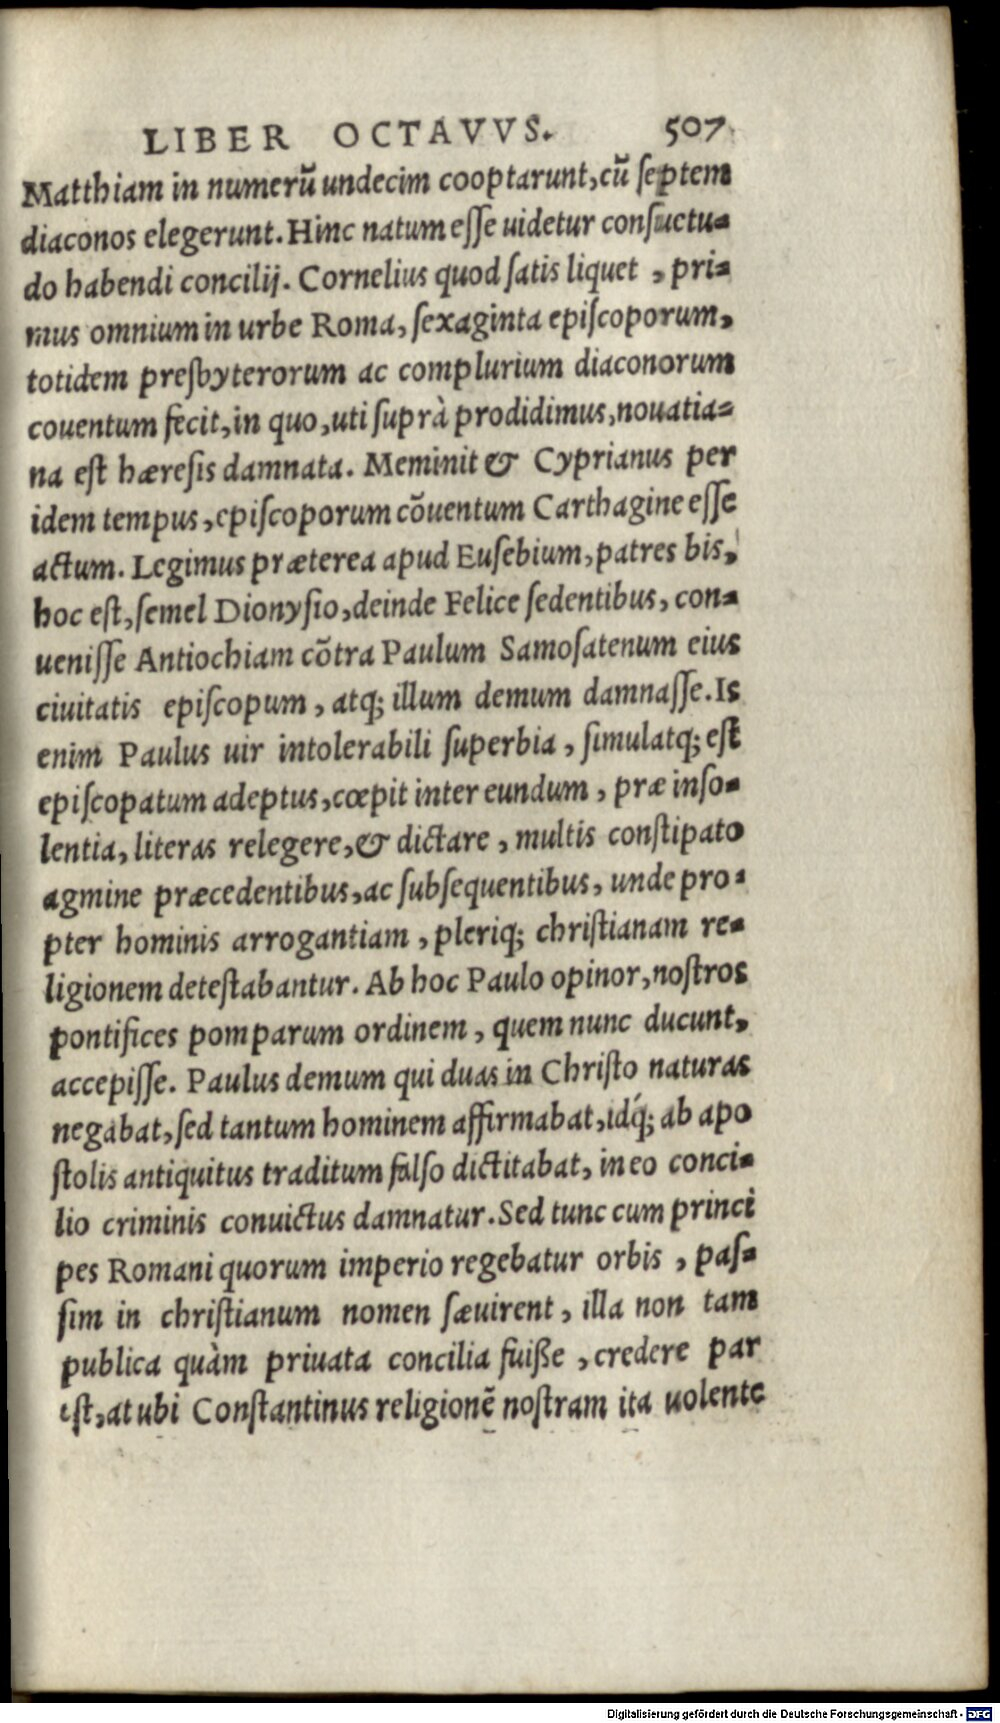 LIBER OCTAVVS. 507
Matthiam in numerũ undecim cooptarunt, cũ ſeptem
diaconos elegerunt. Hinc natum eſſe uidetur conſuetu-
do habendi concilij. Cornelius quod ſatis liquet , pri-
mus omnium in urbe Roma, ſexaginta epiſcoporum,
totidem preſbyterorum ac complurium diaconorum
couentum fecit, in quo, uti ſuprà prodidimus, nouatia-
na eſt hæreſis damnata. Meminit & Cyprianus per
idem tempus, epiſcoporum cõuentum Carthagine eſſe
actum. Legimus præterea apud Euſebium, patres bis,
hoc eſt, ſemel Dionyſio, deinde Felice ſedentibus, con-
ueniſſe Antiochiam cõtra Paulum Samoſatenum eius
ciuitatis epiſcopum, atq; illum demum damnaſſe. Is
enim Paulus uir intolerabili ſuperbia, ſimulatq; eſt
epiſcopatum adeptus, cœpit inter eundum, præ inſo-
lentia, literas relegere, & dictare, multis conſtipato
agmine præcedentibus, ac ſubſequentibus, unde pro-
pter hominis arrogantiam, pleriq; chriſtianam re-
ligionem deteſtabantur. Ab hoc Paulo opinor, noſtros
pontifices pomparum ordinem, quem nunc ducunt,
accepiſſe. Paulus demum qui duas in Chriſto naturas
negabat, ſed tantum hominem affirmabat, idq́; ab apo
ſtolis antiquitus traditum falſo dictitabat, in eo conci-
lio criminis conuictus damnatur. Sed tunc cum princi
pes Romani quorum imperio regebatur orbis, paſ-
ſim in chriſtianum nomen ſæuirent, illa non tam
publica quàm priuata concilia fuiße, credere par
eſt, at ubi Conſtantinus religionẽ noſtram ita uolente
Digitalisierung gefördert durch die Deutsche Forschungsgemeinschaft - DFG